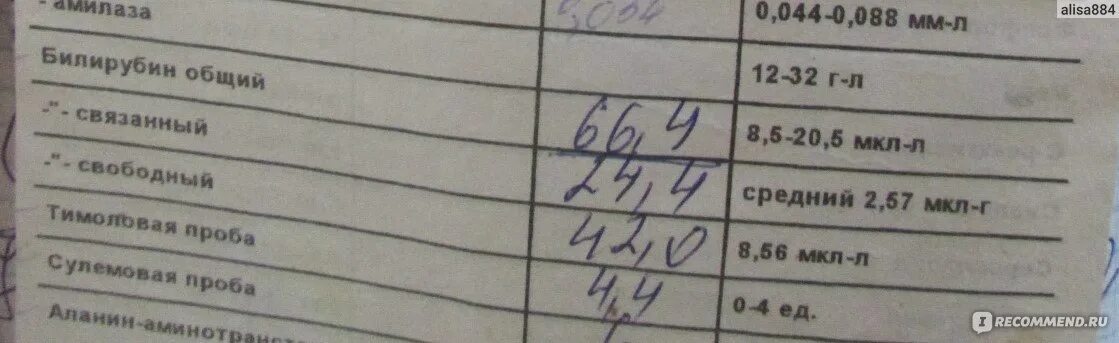 alisa884
- амилаза 0,044-0,088 мм-л
Билирубин общий 12-32 г-л
-"- связанный 66,4 8,5-20,5 мкл-л
-"- свободный 24,4 средний 2,57 мкл-г
Тимоловая проба 42,0 8,56 мкл-л
Сулемовая проба 4,4 0-4 ед.
IRECOMMEND.RU